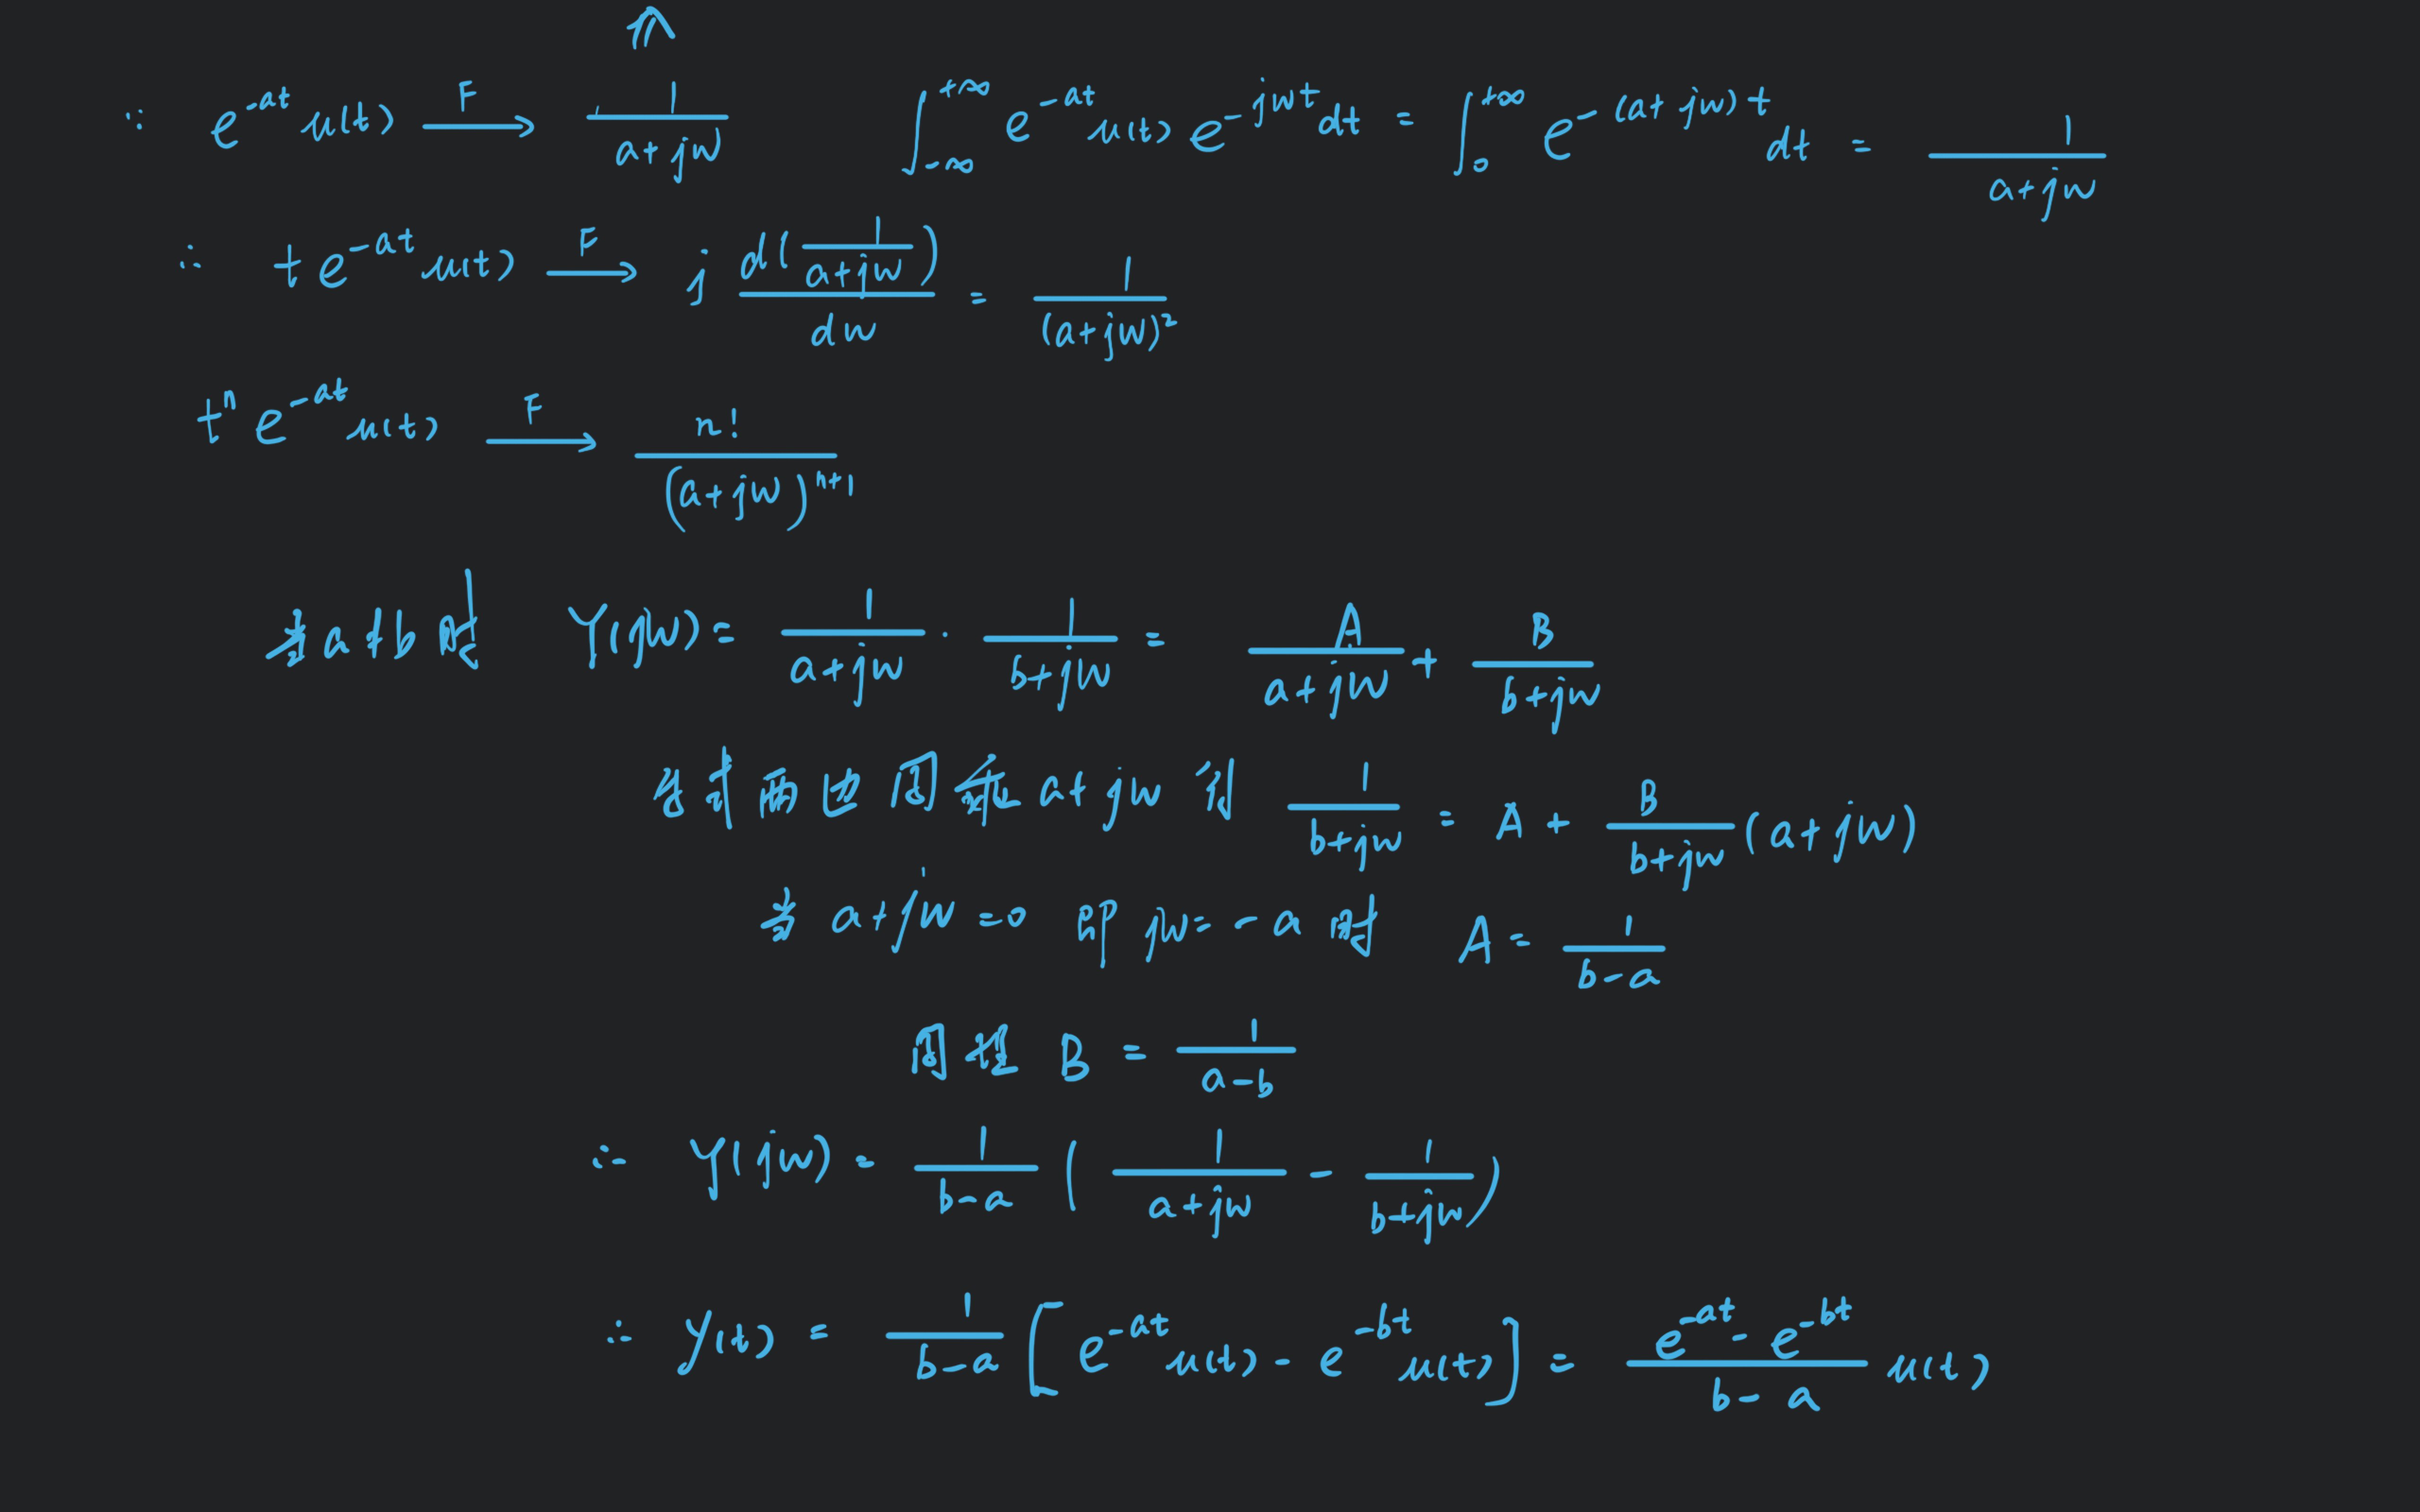 ∵ e^{-at}u(t) —F→ 1/(a+jw)    ∫_{-∞}^{+∞} e^{-at}u(t)e^{-jwt}dt = ∫_0^{+∞} e^{-(a+jw)t}dt = 1/(a+jw)
∴ te^{-at}u(t) —F→ j d(1/(a+jw))/dw = 1/(a+jw)^2
t^n e^{-at}u(t) —F→ n!/(a+jw)^{n+1}
当a≠b时 Y(jw) = 1/(a+jw) · 1/(b+jw) = A/(a+jw) + B/(b+jw)
左右两边同乘a+jw 得 1/(b+jw) = A + B/(b+jw) (a+jw)
当 a+jw=0 即 jw=-a 时 A = 1/(b-a)
同理 B = 1/(a-b)
∴ Y(jw) = 1/(b-a) ( 1/(a+jw) - 1/(b+jw) )
∴ y(t) = 1/(b-a) [e^{-at}u(t) - e^{-bt}u(t)] = (e^{-at} - e^{-bt})/(b-a) u(t)